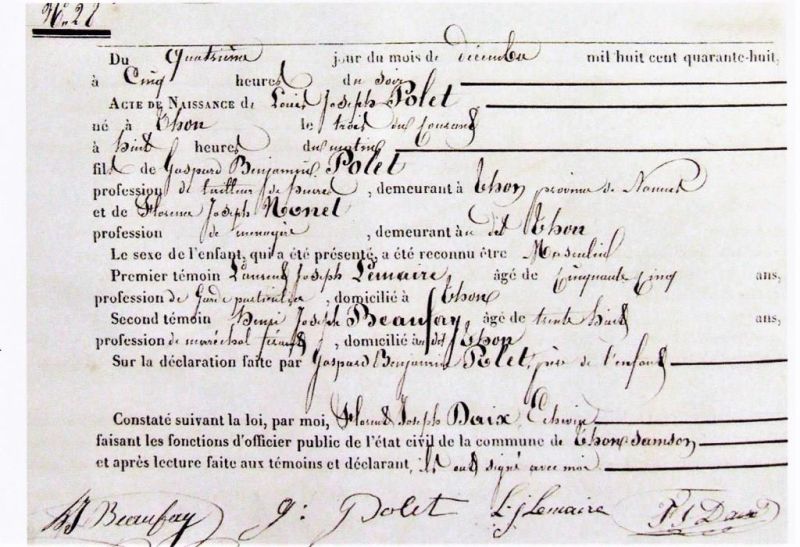 N.° 28
Du quatrième jour du mois de décembre mil huit cent quarante-huit,
à Cinq heures du soir
ACTE DE NAISSANCE de Louis Joseph Polet
né à Thon le trois du Courant
à huit heures du matin
fils de Gaspard Benjamin Polet
profession de tailleur de pierres, demeurant à Thon province de Namur
et de Florence Joseph Monet
profession de ménagère, demeurant au dit Thon
Le sexe de l'enfant, qui a été présenté, a été reconnu être Masculin
Premier témoin Laurent Joseph Lemaire, âgé de Cinquante Cinq ans,
profession de Garde particulier, domicilié à Thon
Second témoin Henri Joseph Beaufay, âgé de trente huit ans,
profession de maréchal ferrant, domicilié au dit Thon
Sur la déclaration faite par Gaspard Benjamin Polet, père de l'enfant
Constaté suivant la loi, par moi, Florent Joseph Daix, Echevin
faisant les fonctions d'officier public de l'état civil de la commune de Thon Samson
et après lecture faite aux témoins et déclarant, ils ont signé avec moi
HJ Beaufay g: Polet L.j Lemaire F J Daix